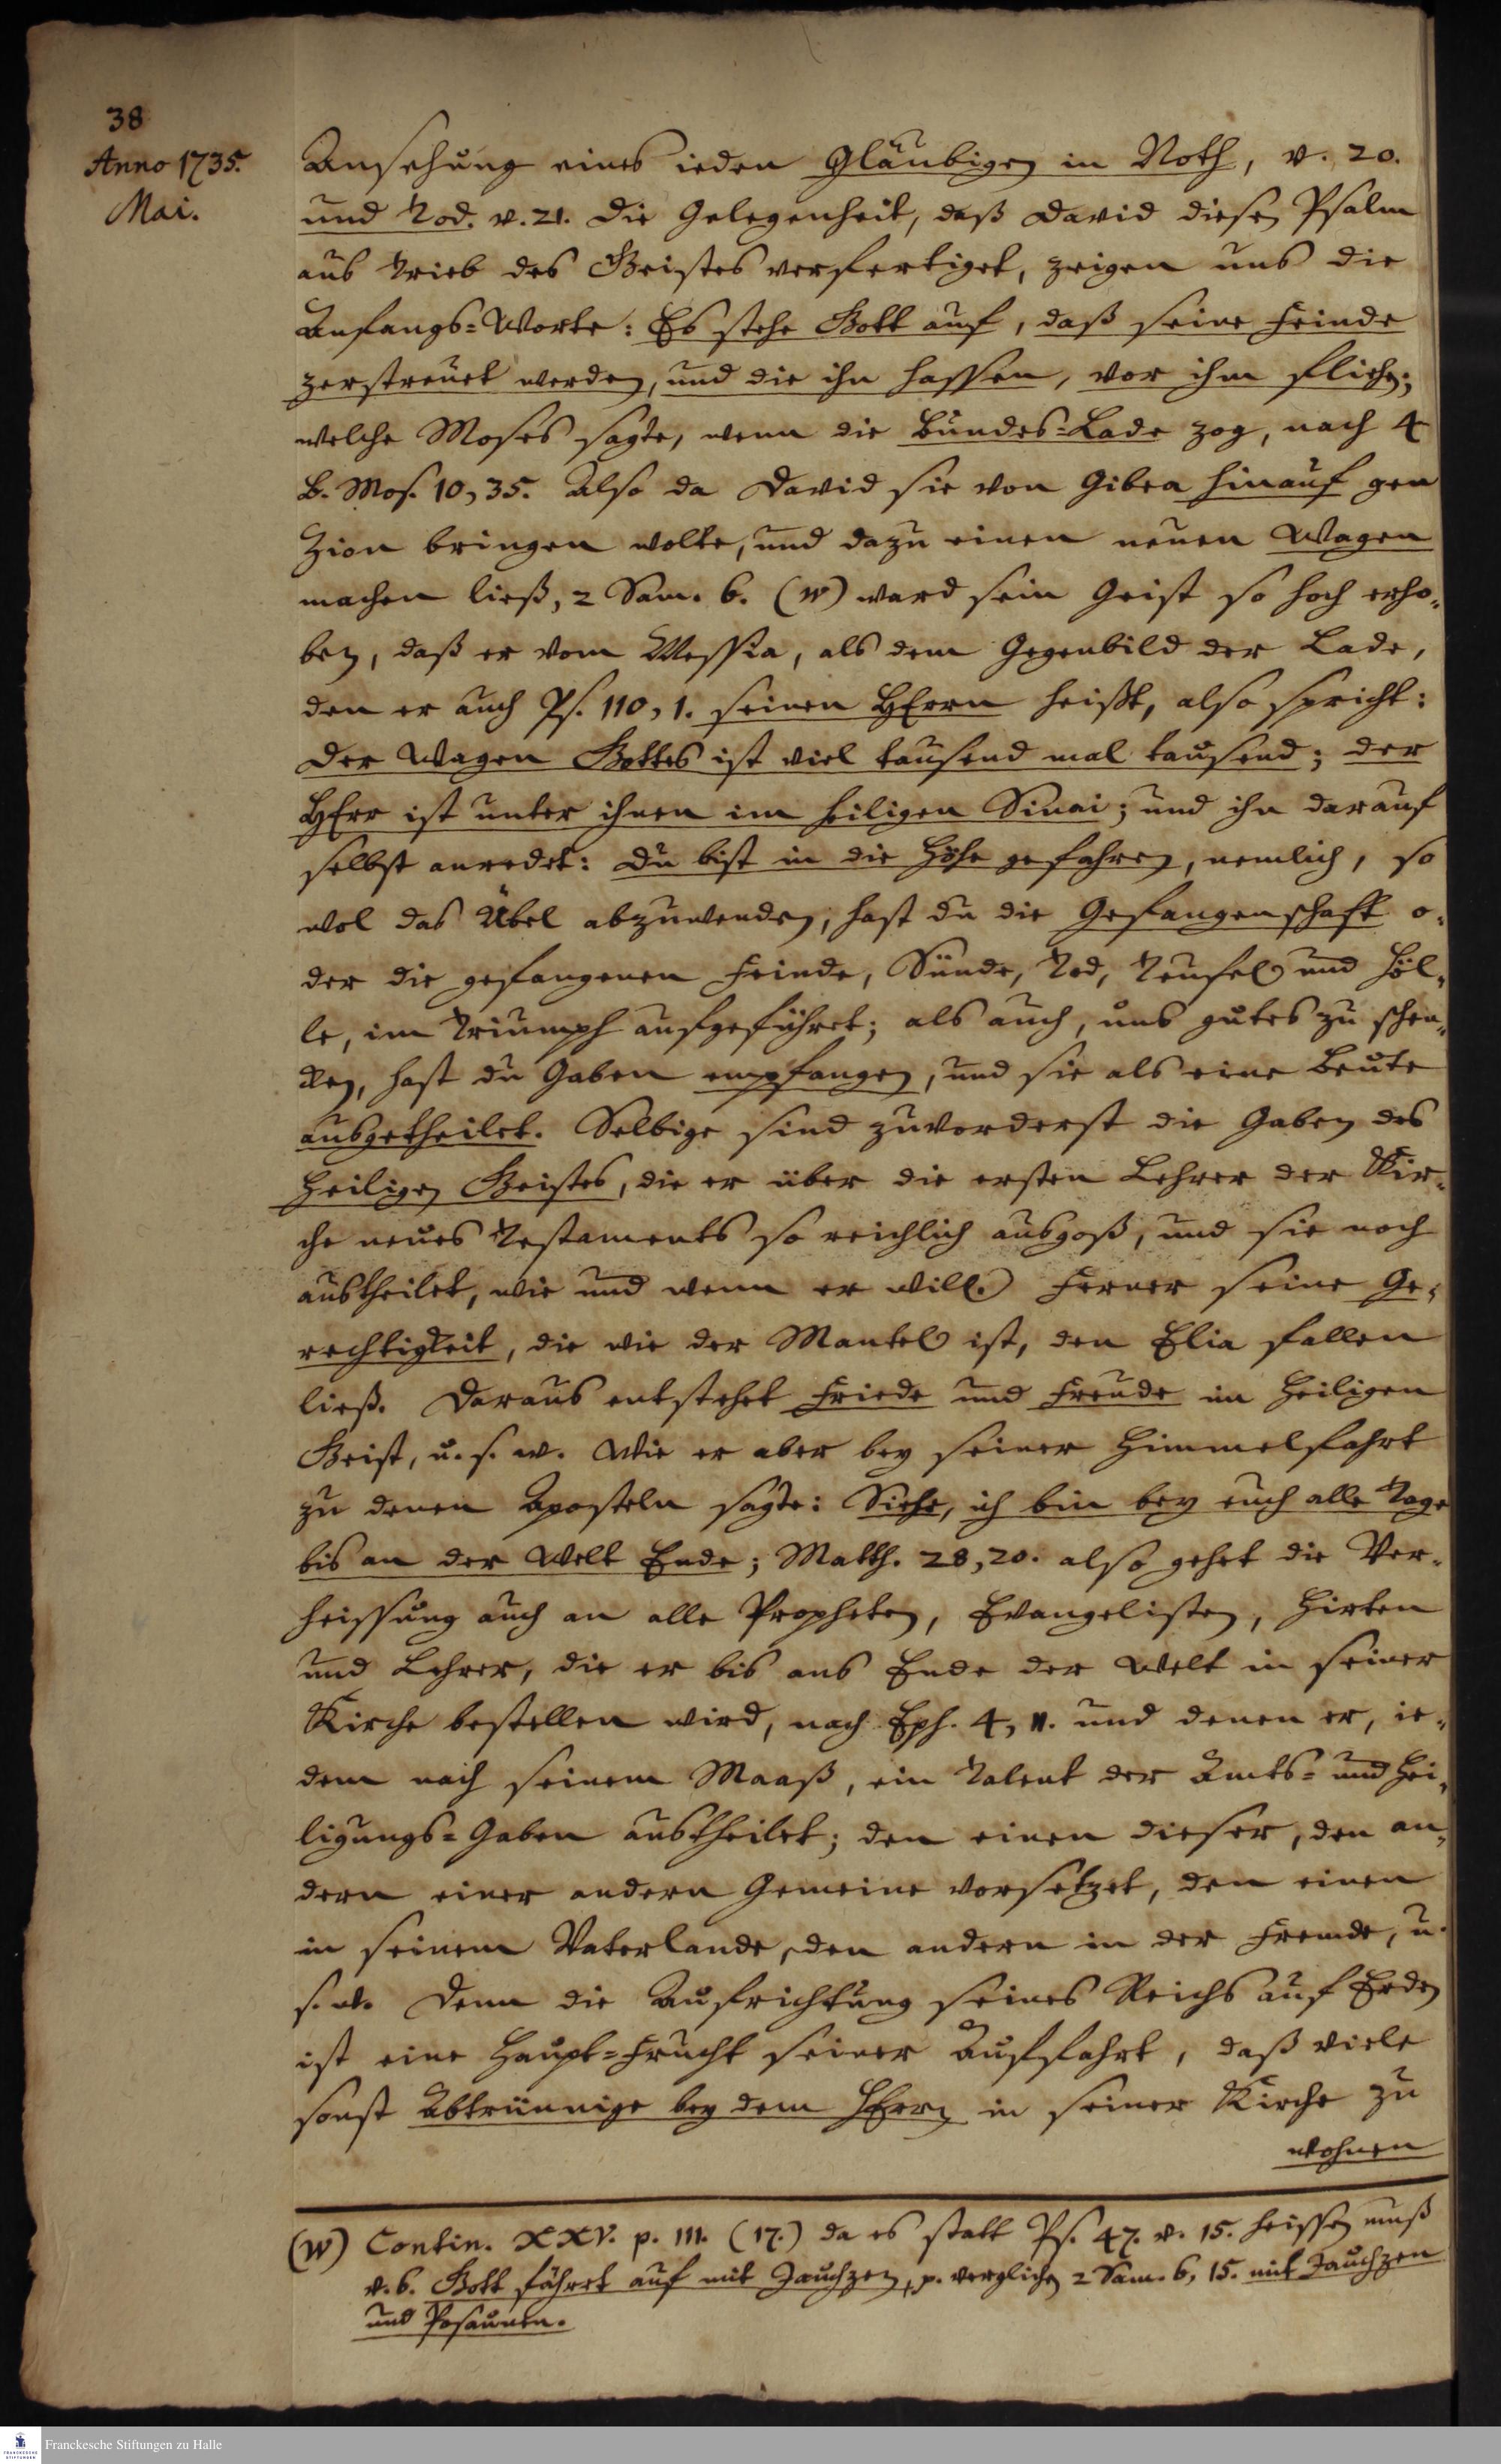 38
Anno 1735.
Mai.
Ansehung eines ieden Gläubigen in Noth, v. 20.
und Tod. v. 21. Die Gelegenheit, daß David diesen Psalm
aus Trieb des Geistes verfertiget, zeigen uns die
Anfangs=Worte: Es stehe Gott auf, daß seine Feinde
zerstreuet werden, und die ihn hassen, vor ihm fliehen;
welche Moses sagte, wenn die Bundes=Lade zog, nach 4
B. Mos. 10, 35. Also da David sie von Gibea hinauf gen
Zion bringen wolte, und dazu einen neuen Wagen
machen ließ, 2 Sam. 6. (w) ward sein Geist so hoch erho=
ben, daß er vom Messia, als dem Gegenbild der Lade,
den er auch Ps. 110, 1. seinen HErrn heißt, also spricht:
Der Wagen Gottes ist viel tausend mal tausend; der
HErr ist unter ihnen im heiligen Sinai; und ihn darauf
selbst anredet: Du bist in die Höhe gefahren, nemlich, so
wol das Übel abzuwenden, hast du die Gefangenschaft o=
der die gefangenen Feinde, Sünde, Tod, Teufel und Höl=
le, im Triumph aufgeführet; als auch, uns gutes zu schen=
ken, hast du Gaben empfangen, und sie als eine Beute
ausgetheilet. Selbige sind zuvorderst die Gaben des
Heiligen Geistes, die er über die ersten Lehrer der Kir=
che neues Testaments so reichlich ausgoß, und sie noch
austheilet, wie und wenn er will. Ferner seine Ge=
rechtigkeit, die wie der Mantel ist, den Elia fallen
ließ. Daraus entstehet Friede und Freude im Heiligen
Geist, u. s. w. Wie er aber bey seiner Himmelfahrt
zu denen Aposteln sagte: Siehe, ich bin bey euch alle Tage
bis an der Welt Ende; Matth. 28, 20. also gehet die Ver=
heissung auch an alle Propheten, Evangelisten, Hirten
und Lehrer, die er bis ans Ende der Welt in seiner
Kirche bestellen wird, nach Eph. 4, 11. und denen er, ie=
dem nach seinem Maaß, ein Talent der Amts= und Hei=
ligungs=Gaben austheilet; den einen dieser, den an=
dern einer andern Gemeine vorsetzet, den einen
in seinem Vaterlande, den andern in der Fremde, u.
s. w. Denn die Aufrichtung seines Reichs auf Erden
ist eine Haupt=Frucht seiner Auffahrt, daß viele
sonst Abtrünnige bey dem HErrn in seiner Kirche zu
wohnen
(w) Contin. XXV. p. 111. (17.) da es statt Ps. 47. v. 15. heissen muß
v. 6. Gott fähret auf mit Jauchzen, p. verglichen 2 Sam. 6, 15. mit Jauchzen
und Posaunen.
Franckesche Stiftungen zu Halle
FRANCKESCHE
STIFTUNGEN